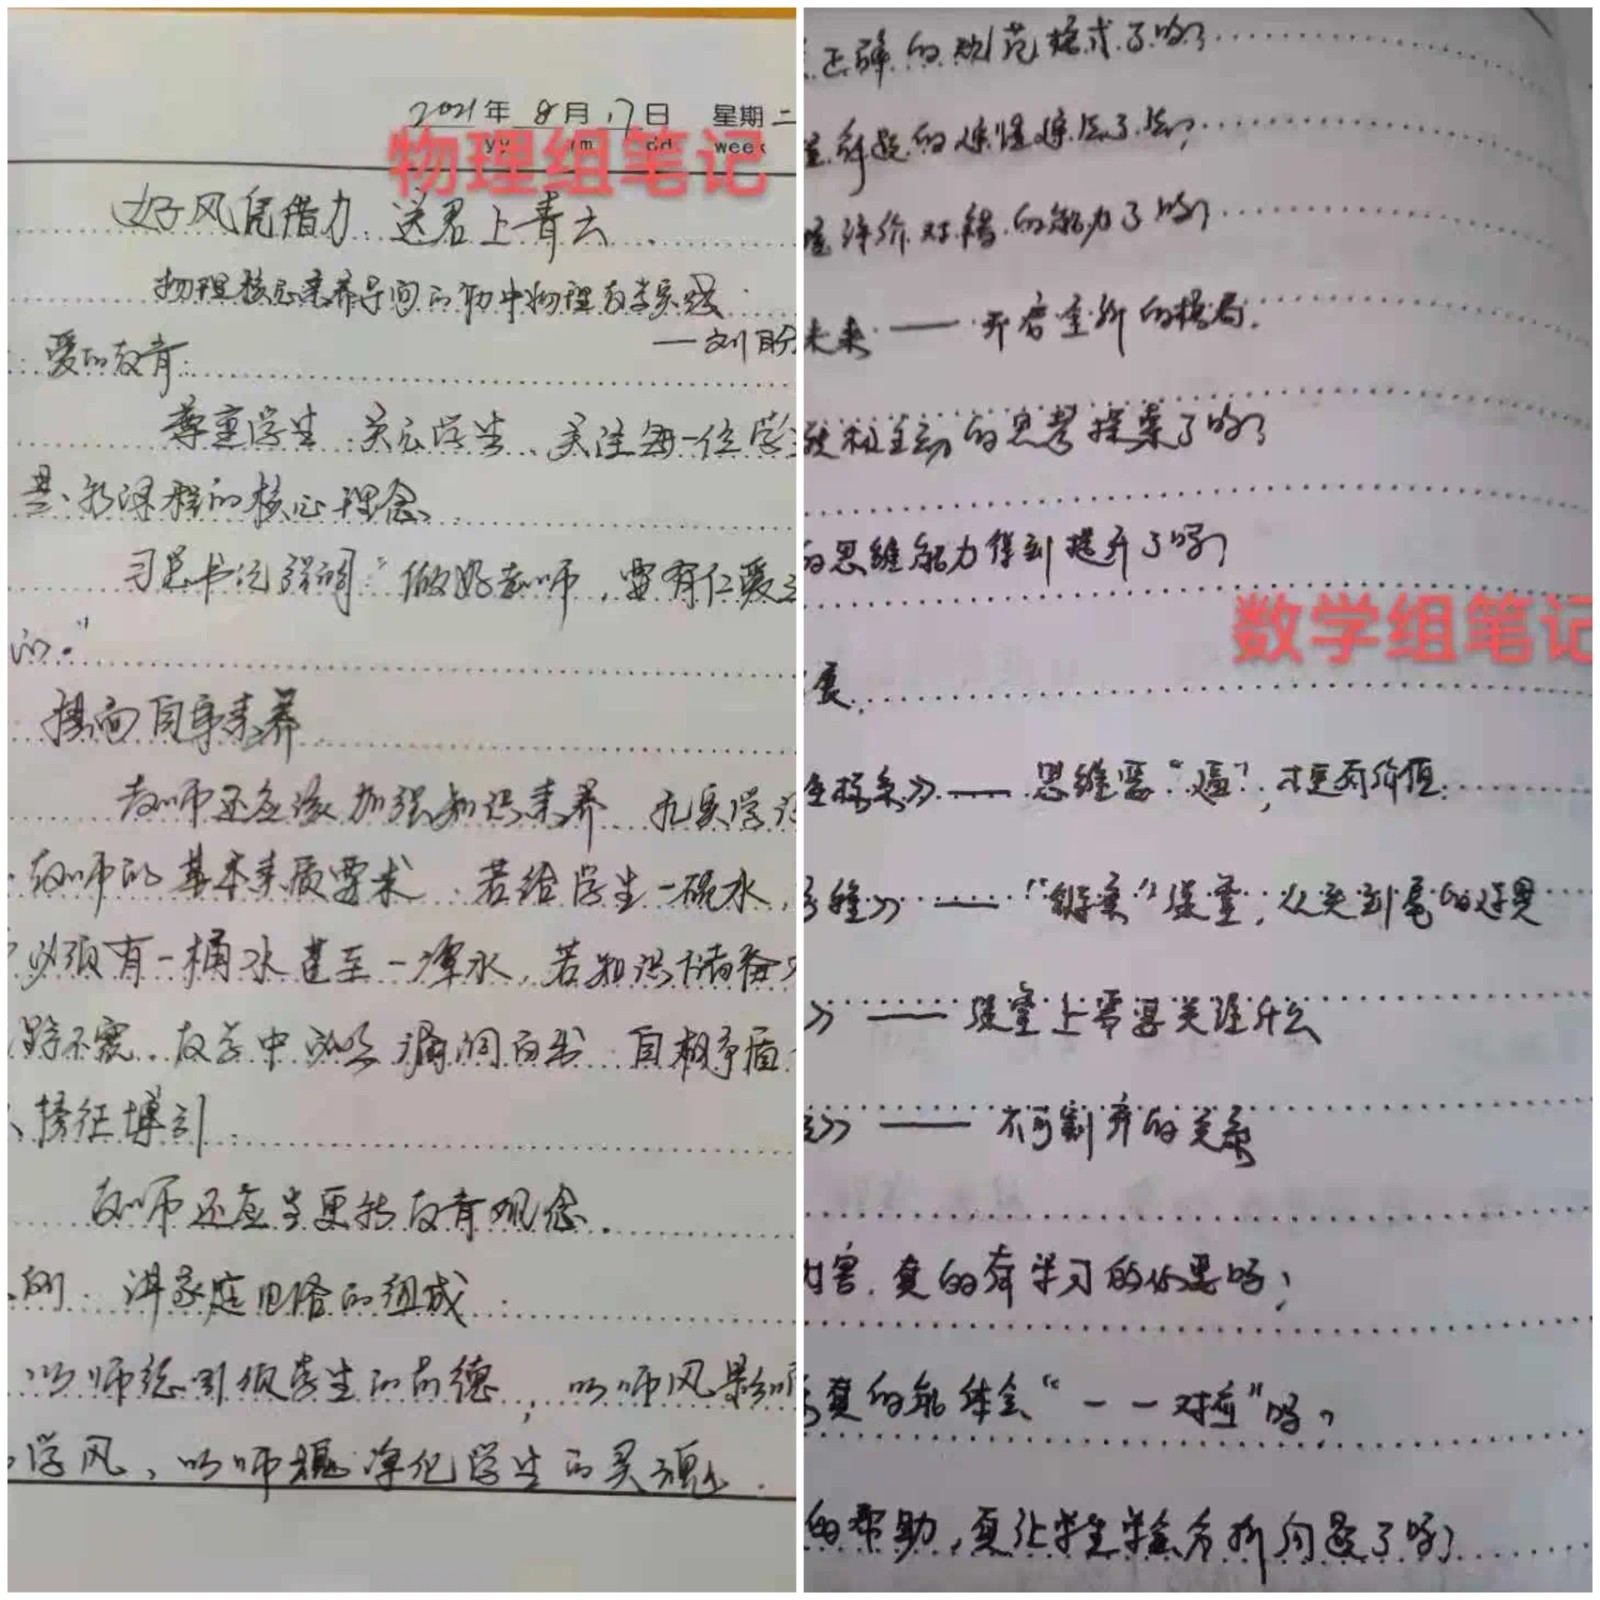 2021年 8月 17日 星期二
yy mm dd week
物理组笔记
好风凭借力、送君上青云
物理核心素养导向的初中物理教学实践
——刘盼
爱的教育
尊重学生、关心学生、关注每一位学
是新课程的核心理念
习总书记强调"做好老师,要有仁爱之
的."
提高自身素养
教师还应该加强知识素养 扎实学识
教师的基本素质要求 若给学生一碗水,
必须有一桶水甚至一潭水,若知识储备
教学中 漏洞百出 自相矛盾
、旁征博引
教师还应当更新教育观念.
例 讲家庭电路的组成
以师德引领学生的品德,以师风影响
学风、以师魂净化学生的灵魂.
正确的规范格式了吗?
评价对错的能力了吗?
未来——开启重新的格局.
积极主动的思考探索了吗?
的思维能力得到提升了吗?
数学组笔记
展
坐标系》——思维要"逼",才更有价值.
》——"解案"课堂,从头到尾的
》——课堂上需要关注什么
》——不可割弃的关系
内容,真的有学习的必要吗?
真的能体会"一一对应"吗?
的帮助,真让学生学会分析问题了吗?